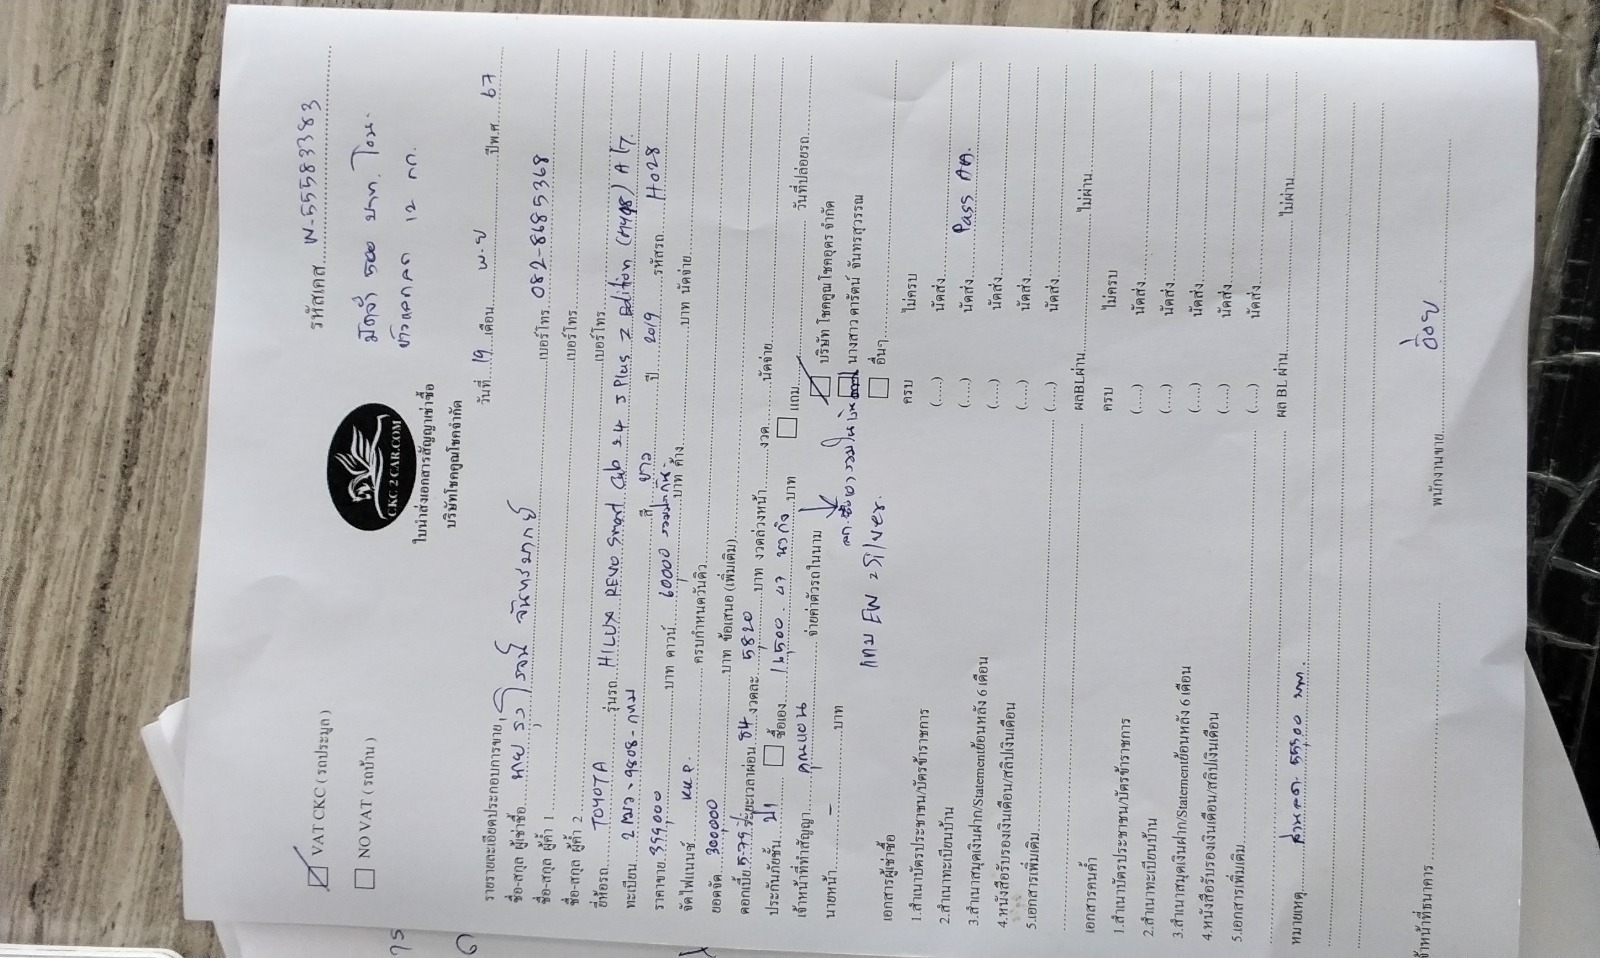 รหัสเคส W-555833383
มัดจำ 500 บาท. โอน-
12 กก.
VAT CKC ( รถประมูล )
NO VAT ( รถบ้าน )
CKC 2 CAR.COM
ใบนำส่งเอกสารสัญญาเช่าซื้อ
บริษัทโชคคูณโชคจำกัด
วันที่ 19 เดือน พ.ย ปีพ.ศ. 67
รายรายละเอียดประกอบการขาย
ชื่อ-สกุล ผู้เช่าซื้อ นาย เบอร์โทร 082-8685368
ชื่อ-สกุล ผู้ค้ำ 1 เบอร์โทร
ชื่อ-สกุล ผู้ค้ำ 2 เบอร์โทร
ยี่ห้อรถ TOYOTA รุ่นรถ HILUX REVO Smart Cab 2.4 J Plus Z Edition
ทะเบียน 9808-กทม สี ขาว ปี 2019 รหัสรถ H028
ราคาขาย 359,000 บาท ดาวน์ 60000 บาท ค้าง บาท นัดจ่าย
จัดไฟแนนซ์ KKP. ครบกำหนดวันคิว
ยอดจัด 300,000 บาท ข้อเสนอ (เพิ่มเติม)
ดอกเบี้ย 5.79% ระยะเวลาผ่อน 84 งวดละ 5820 บาท งวดล่วงหน้า งวด นัดจ่าย
ประกันภัยชั้น ป1 ซื้อเอง 16,500.- บาท แถม วันที่ปล่อยรถ
เจ้าหน้าที่ทำสัญญา จ่ายค่าตัวรถในนาม บริษัท โชคคูณโชคอุดร จำกัด
นายหน้า - บาท นางสาว ดารัตน์ จันทรสุวรรณ
แถม EW Silver. อื่นๆ
เอกสารผู้เช่าซื้อ ครบ ไม่ครบ
1.สำเนาบัตรประชาชน/บัตรข้าราชการ (....) นัดส่ง
2.สำเนาทะเบียนบ้าน (....) นัดส่ง Pass
3.สำเนาสมุดเงินฝาก/Statementย้อนหลัง 6 เดือน (....) นัดส่ง
4.หนังสือรับรองเงินเดือน/สลิปเงินเดือน (....) นัดส่ง
5.เอกสารเพิ่มเติม (....) นัดส่ง
ผลBLผ่าน ไม่ผ่าน
เอกสารคนค้ำ ครบ ไม่ครบ
1.สำเนาบัตรประชาชน/บัตรข้าราชการ (....) นัดส่ง
2.สำเนาทะเบียนบ้าน (....) นัดส่ง
3.สำเนาสมุดเงินฝาก/Statementย้อนหลัง 6 เดือน (....) นัดส่ง
4.หนังสือรับรองเงินเดือน/สลิปเงินเดือน (....) นัดส่ง
5.เอกสารเพิ่มเติม (....) นัดส่ง
ผล BL ผ่าน ไม่ผ่าน
หมายเหตุ
จ้าหน้าที่ธนาคาร พนักงานขาย